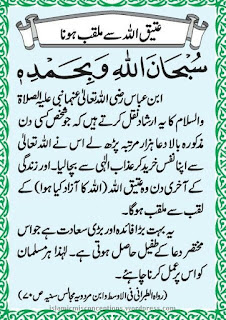 عتیق اللہ سے ملقب ہونا
سُبْحَانَ اللهِ وَبِحَمْدِهٖ
ابن عباس رضی اللہ تعالیٰ عنہما نبی علیہ الصلاۃ
والسلام کا یہ ارشاد نقل کرتے ہیں کہ جو شخص کسی دن
مذکورہ بالا دعا ہزار مرتبہ پڑھ لے اس نے اللہ تعالیٰ
سے اپنا نفس خرید کر عذاب الٰہی سے بچا لیا۔ اور زندگی
کے آخری دن وہ عتیق اللہ (اللہ کا آزاد کیا ہوا) کے
لقب سے ملقب ہوگا۔
یہ بہت بڑا فائدہ اور بڑی سعادت ہے جو اس
مختصر دعا کے طفیل حاصل ہوتی ہے۔ لہٰذا ہر مسلمان
کو اس پر عمل کرنا چاہئے۔
(رواہ الطبرانی فی الاوسط وابن مردویہ مجالس سنیہ ص ۷۰)
islamicmisconceptions.wordpress.com